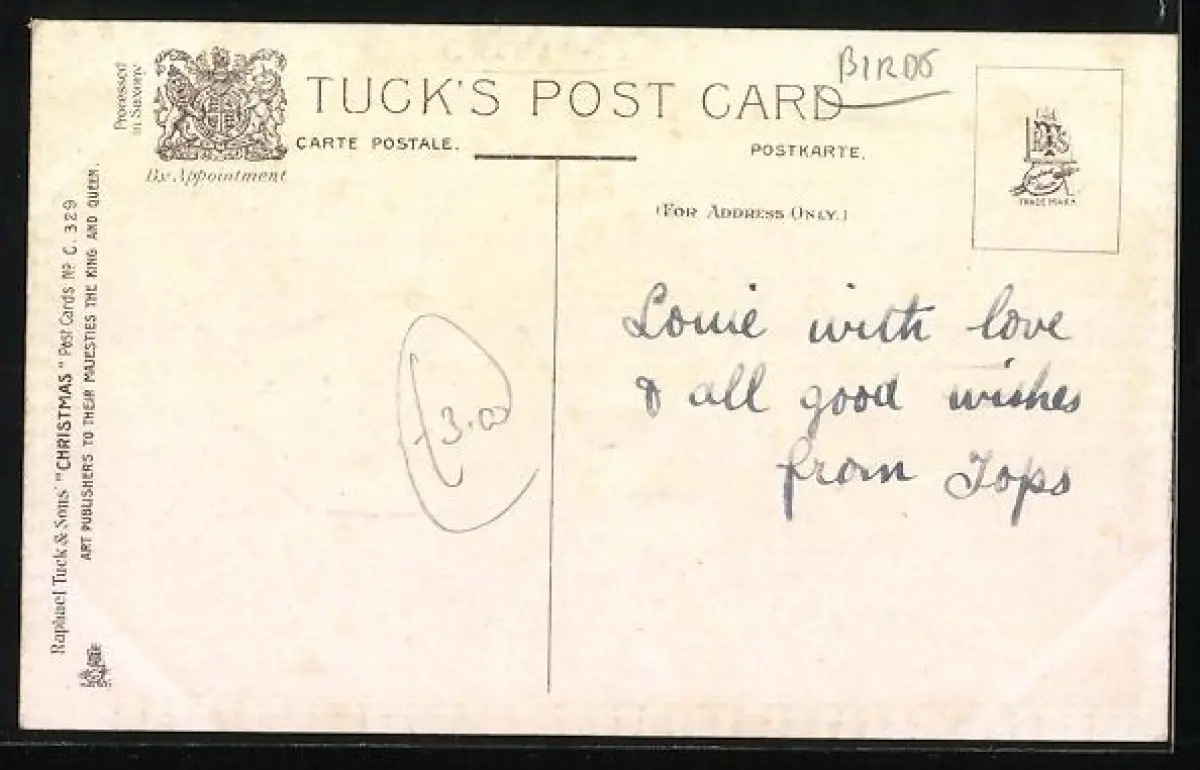 BIRDS
TUCK'S POST CARD
CARTE POSTALE.
POSTKARTE.
Processed in Saxony
By Appointment
(FOR ADDRESS ONLY.)
TRADE MARK
Raphael Tuck & Sons' "CHRISTMAS" Post Cards No C. 329
ART PUBLISHERS TO THEIR MAJESTIES THE KING AND QUEEN.
£3.00
Louie with love
& all good wishes
from Tops